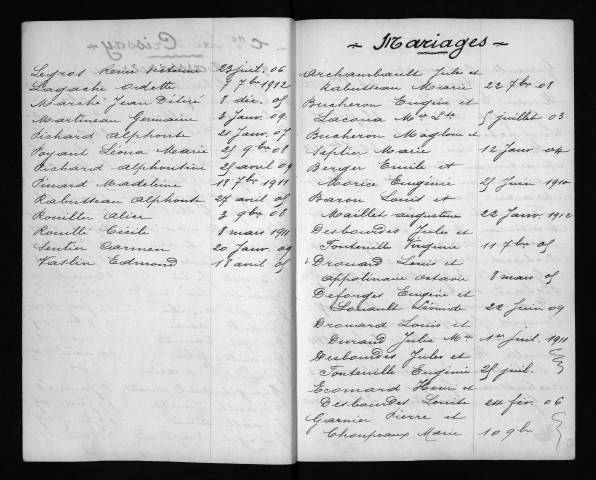 Crissay
Legros René Victorine 23 juil. 06
Lagache Odette 7 7bre 1912
Marché Jean Désiré 8 déc. 05
Martineau Germaine 3 Janv. 09
Pichard Alphonse 21 Janv. 07
Poyant Léona Marie 25 9bre 08
Richard Alphonsine 25 avril 09
Pinard Madeleine 18 7bre 1911
Rabusseau Alphonse 27 avril 05
Rouiller Alice 3 9bre 08
Rouillé Cécile 8 mars 1911
Sentier Carmen 20 Janv. 09
Vaslin Edmond 18 avril 05
Mariages
Archambault Jules et
Rabusseau Marie 22 7bre 08
Bucheron Eugène et
Lacoua Mie Lse 5 juillet 03
Bucheron Magloire et
Septier Marie 12 Janv. 04
Berger Emile et
Morice Eugénie 25 Juin 1910
Baron Louis et
Maillet augustine 22 Janv. 1912
Desbourdes Jules et
Fonteville Virginie 11 7bre 05
Drouard Louis et
Appolinaire octavie 8 mars 05
Deforges Eugène et
Louault Léonide 22 Juin 09
Drouard Louis et
Durand Julie Mie 1er juil. 1911
Desbourdes Jules et
Fonteville Eugénie 25 juil.
Ecomard Henri et
Desbourdes Louise 24 fév. 06
Garnier Pierre et
Choupeaux Marie 10 9bre